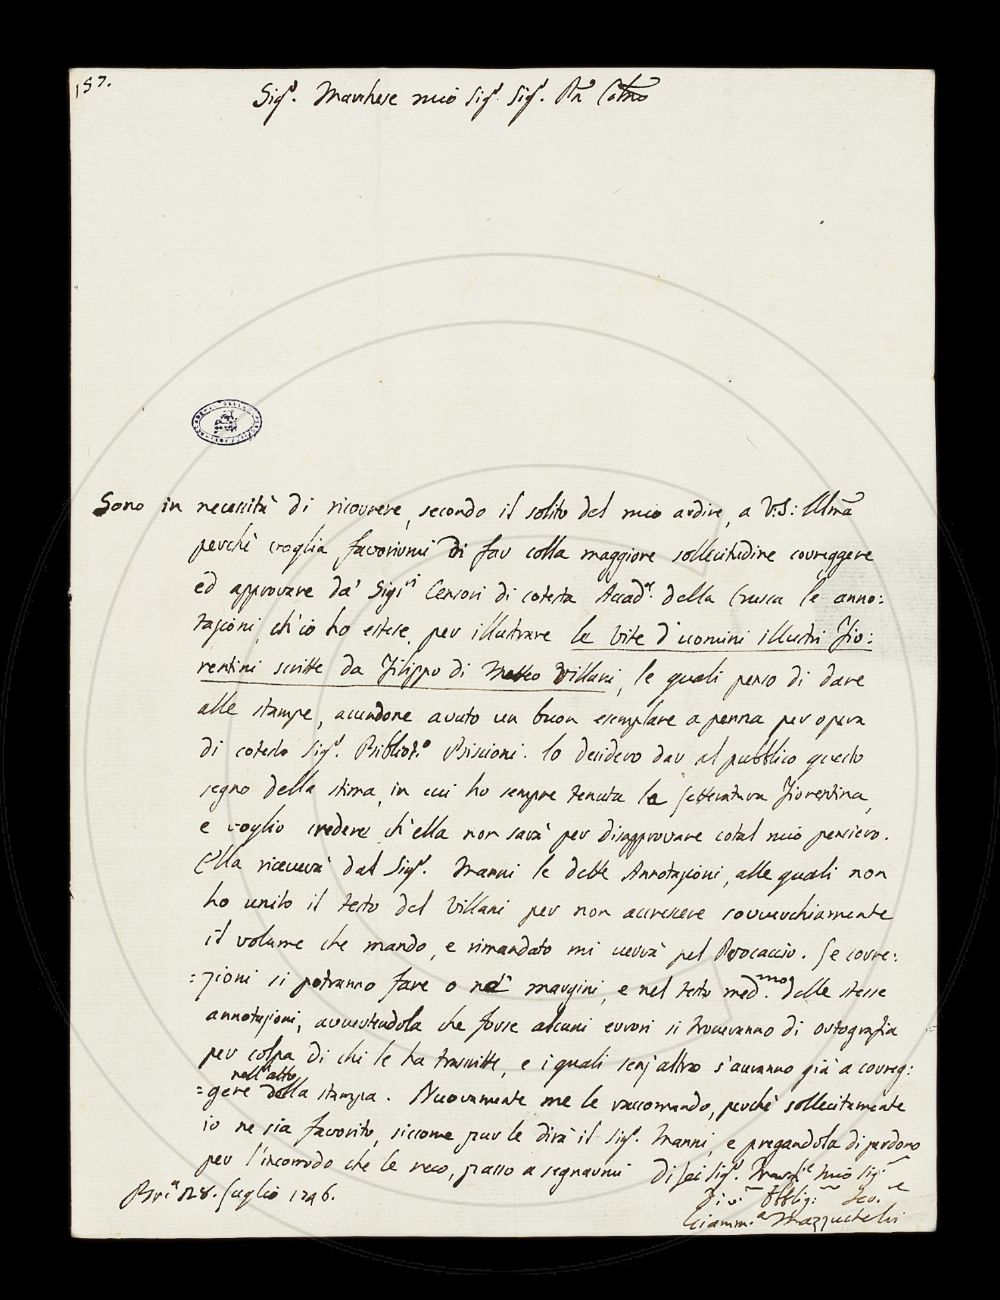 157.
Sig.r Marchese mio Sig.r Sig.r P.ne Col.mo
Sono in necessità di ricorrere, secondo il solito del mio ardire, a V.S: Ill.ma
perchè voglia favorirmi di far colla maggiore sollecitudine correggere
ed approvare da' Sig.ri Censori di cotesta Accad.a della Crusca le anno:
tazioni, ch'io ho estese per illustrare le Vite d'uomini illustri Fio:
rentini scritte da Filippo di Matteo Villani, le quali penso di dare
alle stampe, avendone avuto un buon esemplare a penna per opera
di cotesto Sig.r Bibliot.o Biscioni. Io desidero dar al pubblico questo
segno della stima, in cui ho sempre tenuta la Letteratura Fiorentina,
e voglio credere ch'ella non sarà per disapprovare cotal mio pensiero.
Ella riceverà dal Sig.r Manni le dette Annotazioni, alle quali non
ho unito il testo del Villani per non accrescere soverchiamente
il volume che mando, e rimandato mi verrà pel Procaccio. Le corre:
=zioni si potranno fare o ne' margini, e nel testo med.mo delle stesse
annotazioni, avvertendola che forse alcuni errori si troveranno di ortografia
per colpa di chi le ha trascritte, e i quali senz'altro s'avranno già a correg:
nell'atto
=gere della stampa. Nuovamente me le raccomando, perchè sollecitamente
io ne sia favorito, siccome pur le dirà il Sig.r Manni, e pregandola di perdono
per l'incomodo che le reco, passo a segnarmi di Lei Sig.r March.e mio Sig.r
Bre.a 28. Luglio 1746.
Div.mo Obblig.mo Ser.e
Giamm.a Mazzuchelli